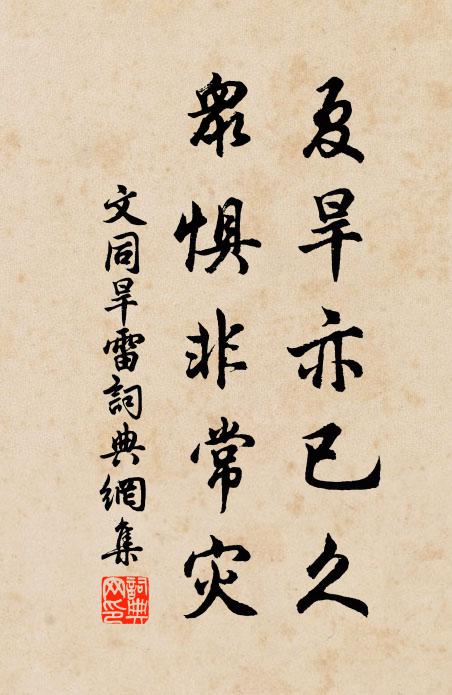 夏旱亦已久
眾懼非常灾
文同旱雷詞典網集
詞典网印